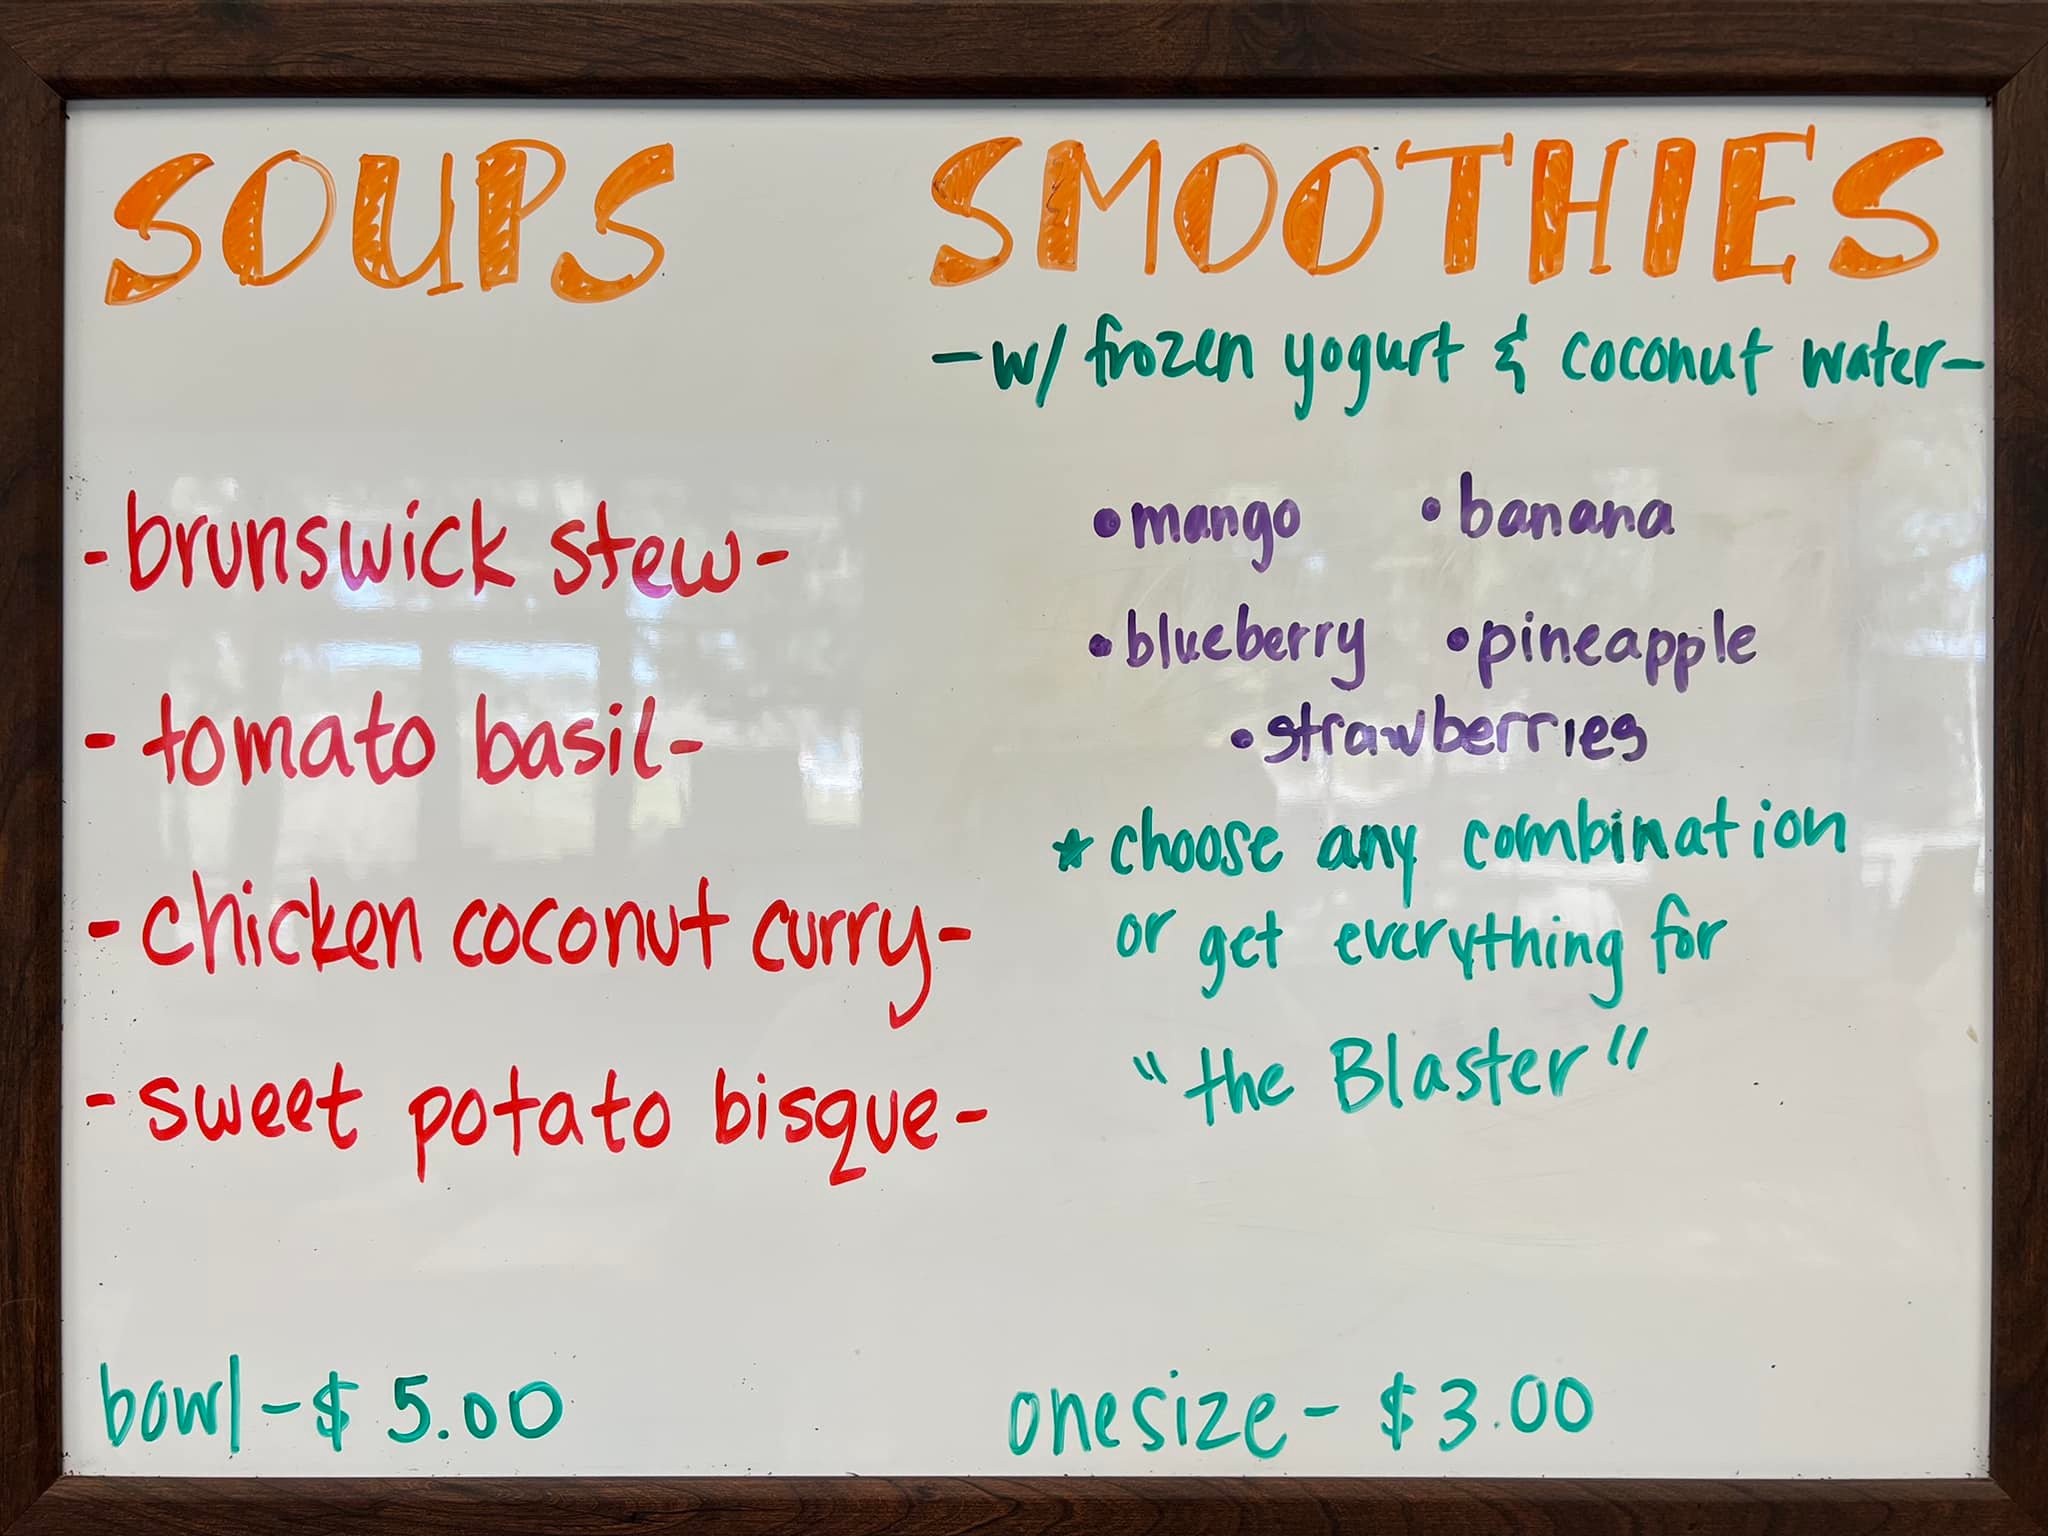 SOUPS
-brunswick stew-
- tomato basil-
- chicken coconut curry-
- sweet potato bisque-
bowl - $ 5.00
SMOOTHIES
- w/ frozen yogurt & coconut water-
• mango • banana
• blueberry • pineapple
• strawberries
* choose any combination
or get everything for
"the Blaster"
one size - $ 3.00